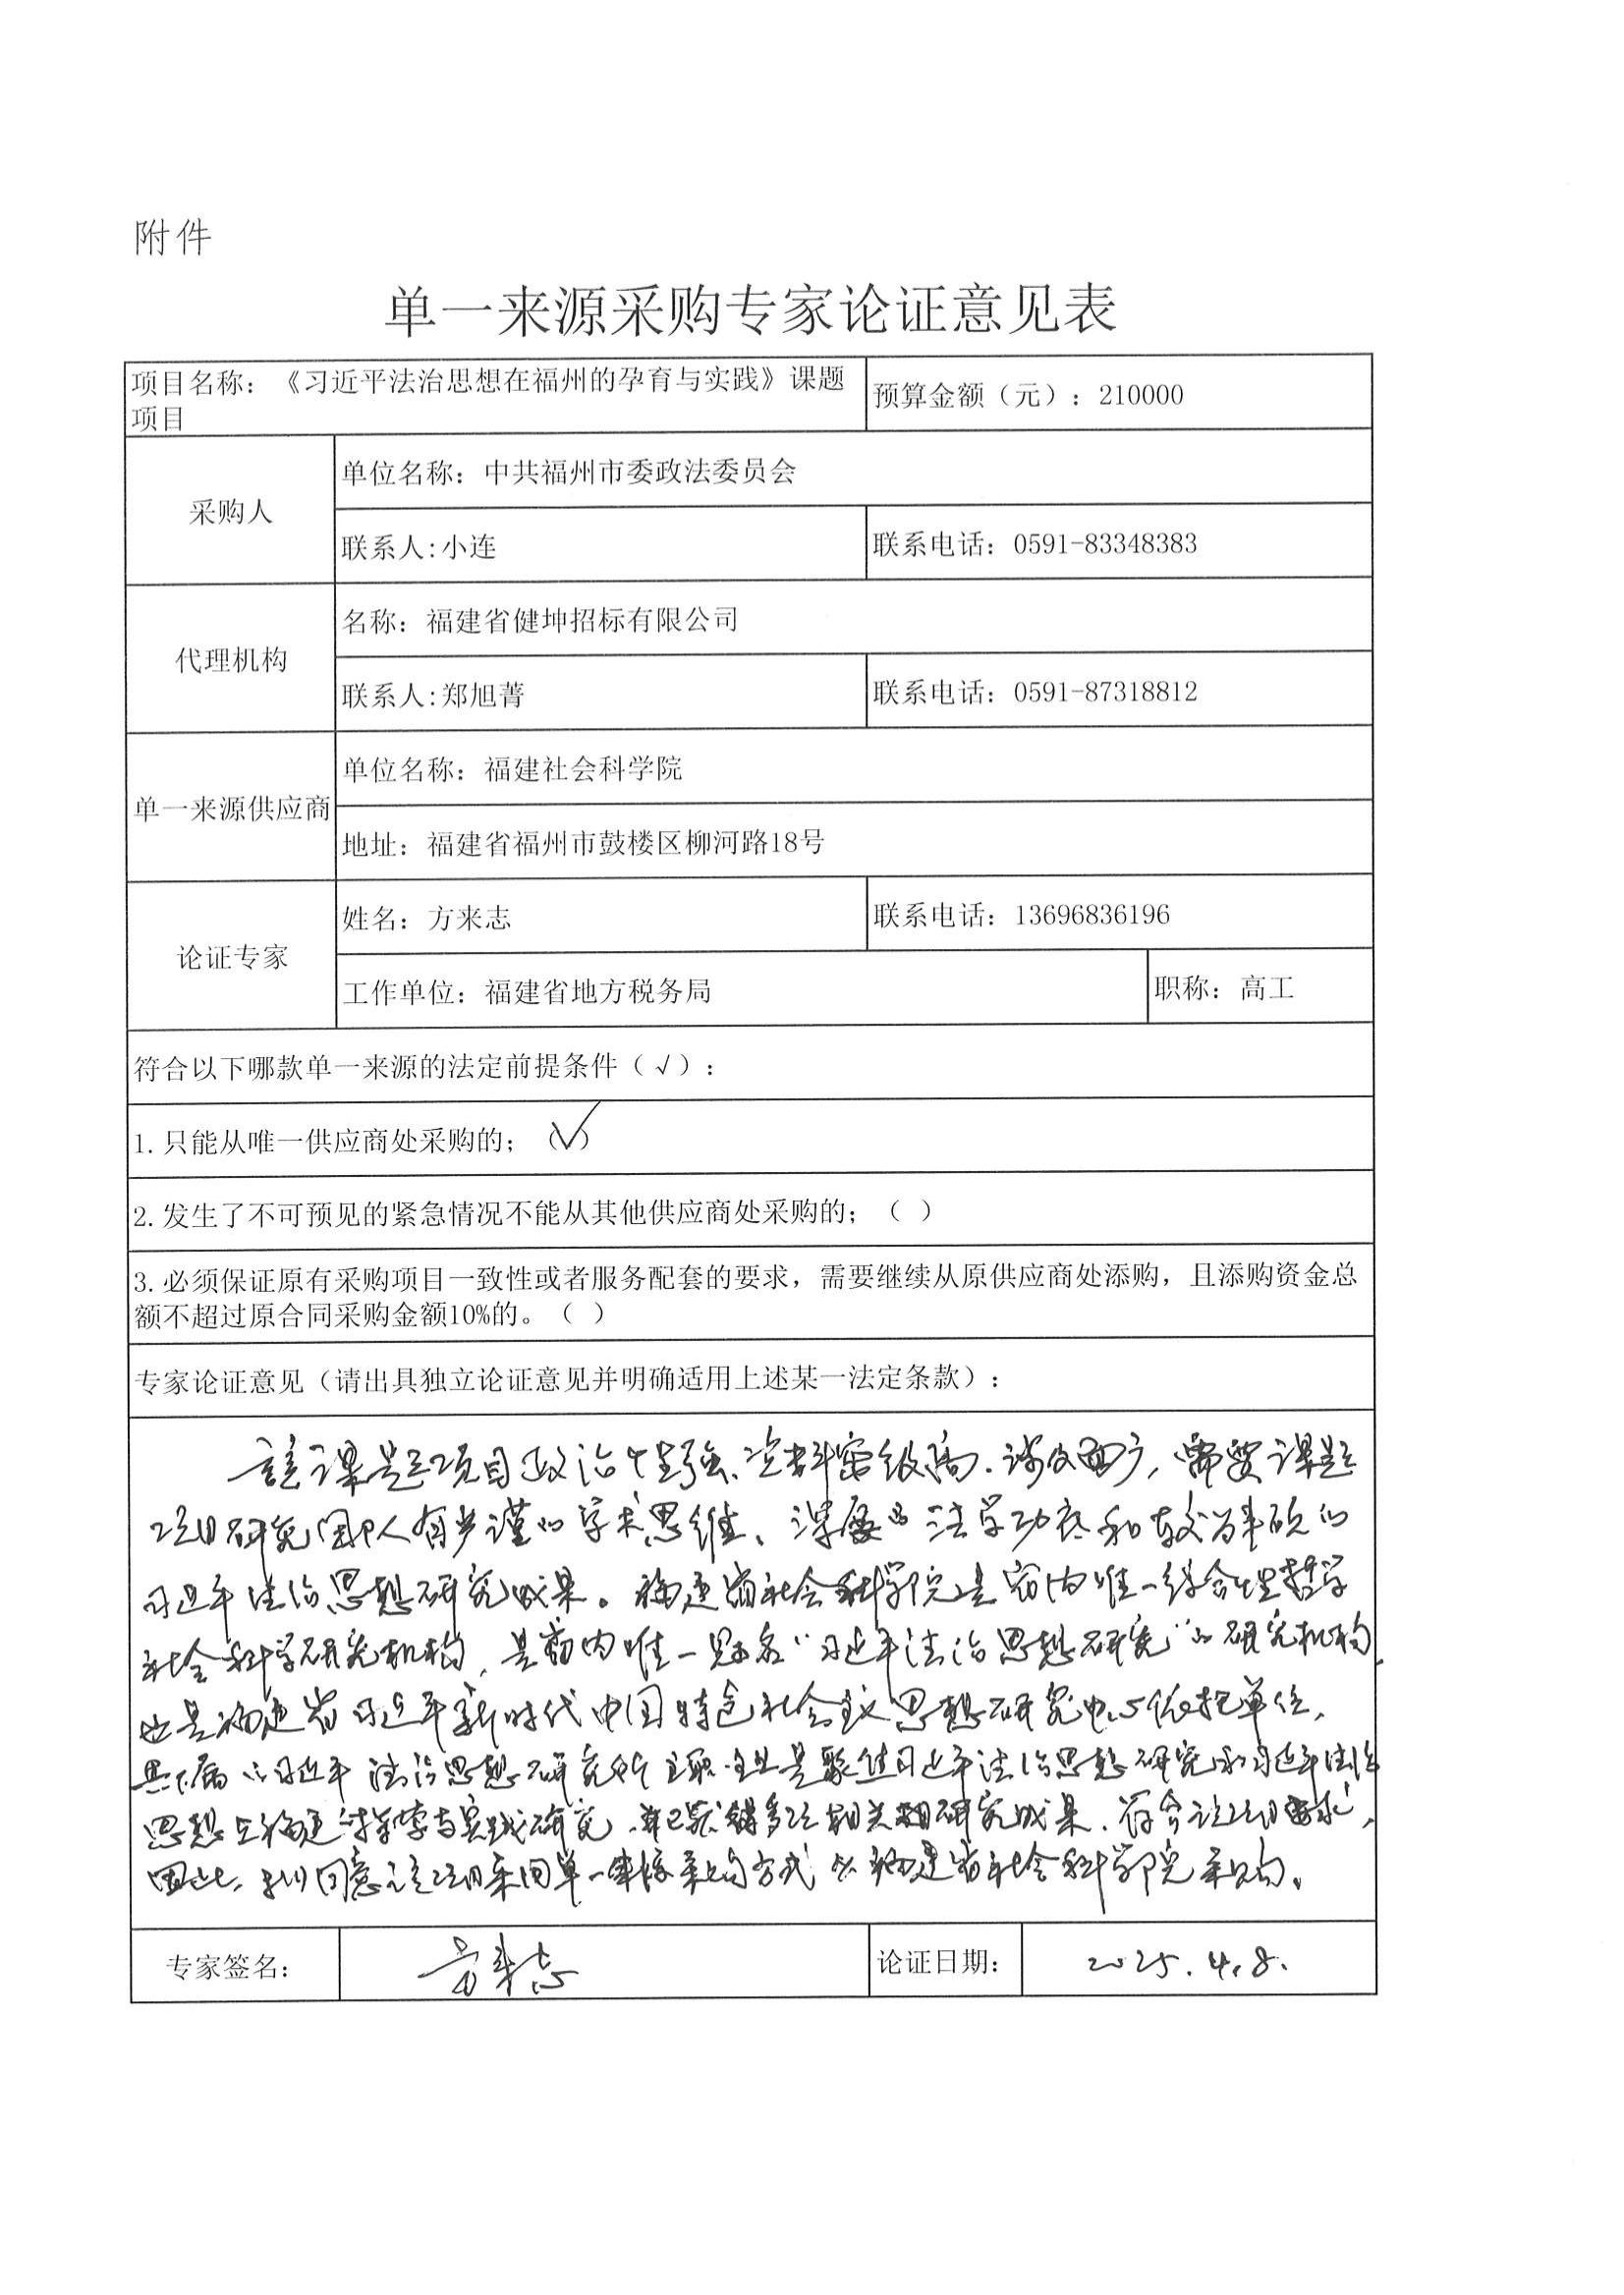 附件
单一来源采购专家论证意见表
项目名称：《习近平法治思想在福州的孕育与实践》课题
项目
预算金额（元）：210000
采购人
单位名称：中共福州市委政法委员会
联系人:小连
联系电话：0591-83348383
代理机构
名称：福建省健坤招标有限公司
联系人:郑旭菁
联系电话：0591-87318812
单一来源供应商
单位名称：福建社会科学院
地址：福建省福州市鼓楼区柳河路18号
论证专家
姓名：方来志
联系电话：13696836196
工作单位：福建省地方税务局
职称：高工
符合以下哪款单一来源的法定前提条件（√）：
1.只能从唯一供应商处采购的；（√）
2.发生了不可预见的紧急情况不能从其他供应商处采购的；（ ）
3.必须保证原有采购项目一致性或者服务配套的要求，需要继续从原供应商处添购，且添购资金总
额不超过原合同采购金额10%的。（ ）
专家论证意见（请出具独立论证意见并明确适用上述某一法定条款）：
该课题项目政治性强、资料密级高、涉及面广，需要课题
项目研究团队人有严谨的学术思维、深厚的法学功底和较为丰硕的
习近平法治思想研究成果。福建省社会科学院是省内唯一综合性哲学
社会科学研究机构，是省内唯一冠名“习近平法治思想研究”的研究机构，
也是福建省习近平新时代中国特色社会主义思想研究中心依托单位，
其下属的习近平法治思想研究所主职主业是聚焦习近平法治思想研究和习近平法治
思想在福建孕育与实践研究，并已获得多项相关研究成果，符合该项目要求，
因此，我同意该项目采用单一来源采购方式从福建省社会科学院采购。
专家签名：
方来志
论证日期：
2025.4.8.